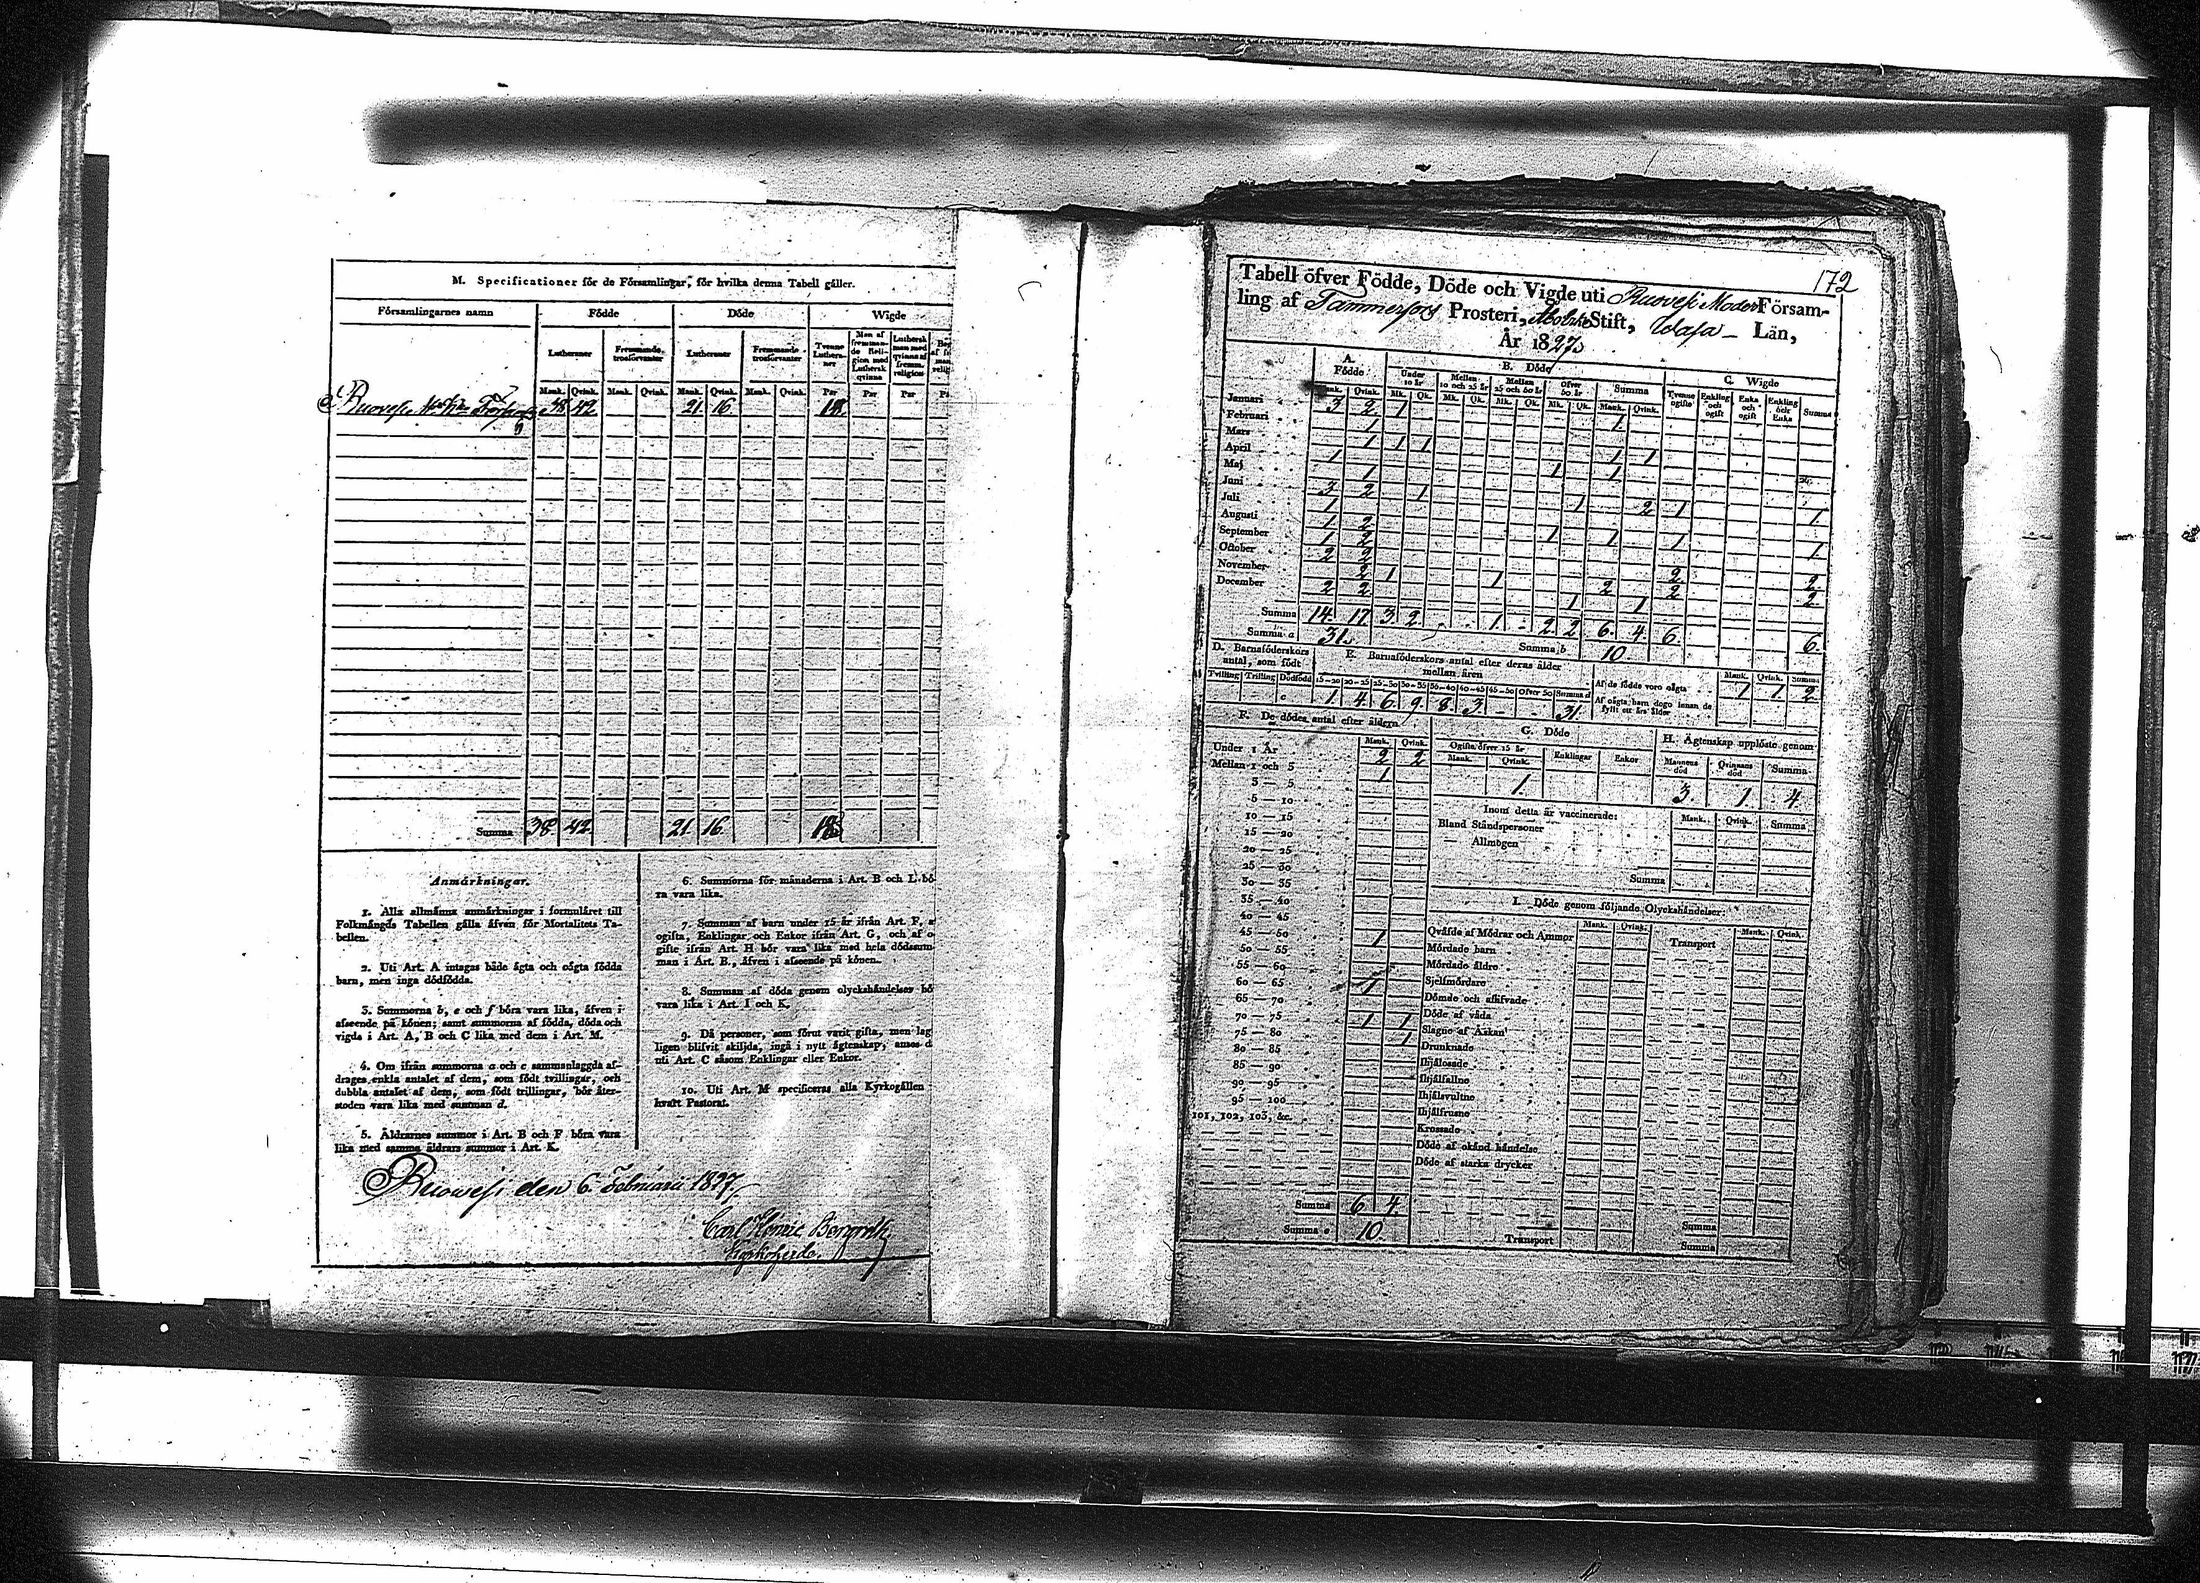 M. Specificationer för de Församlingar, för hvilka denna Tabell gäller.
Församlingarnes namn Födde Döde Wigde
Lutheraner Fremmande trosförvanter Lutheraner Fremmande trosförvanter Tvenne Lutheraner Men af fremmande Religion med Luthersk qvinna Luthersk man med qvinna af fremm. religion
Mank. Qvink. Mank. Qvink. Mank. Qvink. Mank. Qvink. Par Par Par
Ruovesi 38 42 21 16
Summa 38 42 21 16
Anmärkningar.
1. Alla allmänna anmärkningar i formuläret till
Folkmängds Tabellen gälla äfven för Mortalitets Ta-
bellen.
2. Uti Art. A intagas både ägta och oägta födda
barn, men inga dödfödda.
3. Summorna b, e och f böra vara lika, äfven i
afseende på könen; samt summorna af födda, döda och
vigda i Art. A, B och C lika med dem i Art. M.
4. Om ifrån summorna a och c sammanlaggda af-
drages enkla antalet af dem, som födt tvillingar, och
dubbla antalet af dem, som födt trillingar, bör åter-
stoden vara lika med summan d.
5. Åldrarnes summor i Art. B och F böra vara
lika med samma åldrars summor i Art. K.
6. Summorna för månaderna i Art. B och L bö-
ra vara lika.
7. Summan af barn under 15 år ifrån Art. F,
ogifta, Enklingar och Enkor ifrån Art. G, och af o-
gifte ifrån Art. H bör vara lika med hela dödssum-
man i Art. B., äfven i afseende på könen.
8. Summan af döda genom olyckshändelser bö
vara lika i Art. I och K.
9. Då personer, som förut varit gifta, men lag
ligen blifvit skiljda, ingå i nytt ägtenskap, anses d
uti Art. C såsom Enklingar eller Enkor.
10. Uti Art. M specificeras alla Kyrkogällen
hvart Pastorat.
Ruowesi den 6. Februarii 1827
Carl Henric Bergroth
Kyrkoherde.
172
Tabell öfver Födde, Döde och Vigde uti Ruovesi Moder Försam-
ling af Tammerfors Prosteri, Åbo Stift, Wasa Län,
År 1827
A. Födde B. Döde C. Wigde
Under 10 år Mellan 10 och 25 år Mellan 25 och 60 år Öfver 60 år Summa Tvenne ogifte Enkling och ogift Enka och ogift Enkling och Enka Summa
Mank. Qvink. Mk. Qk. Mk. Qk. Mk. Qk. Mk. Qk. Mank. Qvink.
Januari 3 2 1 1
Februari 1
Mars 1 1 1 1 1
April 1 1 1
Maj 1
Juni 3 2 1 1 2 1 1
Juli 1
Augusti 1 2 1 1 1 1
September 1 2
Oktober 2 2 2 2
November 2 1 1 2 2 2
December 2 2 1 1
Summa 14 17 3 2 1 2 2 6 4 6 6
Summa a 31 Summa b 10
D. Barnaföderskors antal, som födt E. Barnaföderskors antal efter deras ålder mellan åren
Tvilling Trilling Dödfödd 15—20 20—25 25—30 30—35 35—40 40—45 45—50 Öfver 50 Summa d
c 1 4 6 9 8 3 31
Mank. Qvink. Summa
Af de födde voro oägta 1 1 2
Af oägta barn dogo innan de fyllt ett års ålder
F. De dödes antal efter åldern
Mank. Qvink.
Under 1 År 2 2
Mellan 1 och 3 1
3 — 5
5 — 10
10 — 15
15 — 20
20 — 25
25 — 30
30 — 35
35 — 40
40 — 45
45 — 50 1
50 — 55
55 — 60
60 — 65 1
65 — 70
70 — 75 1 1
75 — 80 1
80 — 85
85 — 90
90 — 95
95 — 100
101, 102, 103, &c.
Summa 6 4
Summa e 10
G. Döde H. Ägtenskap upplöste genom
Ogifta öfver 15 år Enklingar Enkor Mannens död Qvinnans död Summa
Mank. Qvink.
1 3 1 4
Inom detta år vaccinerade: Mank. Qvink. Summa
Bland Ståndspersoner
— Allmogen
Summa
I. Döde genom följande Olyckshändelser:
Mank. Qvink. Transport Mank. Qvink.
Qväfda af Mödrar och Ammor
Mördade barn
Mördade äldre
Sjelfmördare
Dömde och aflifvade
Döde af våda
Slagne af Åskan
Drunknade
Ihjälosade
Ihjälfallne
Ihjälsvultne
Ihjälfrusne
Krossade
Döde af okänd händelse
Döde af starka drycker
Transport
Summa
Summa